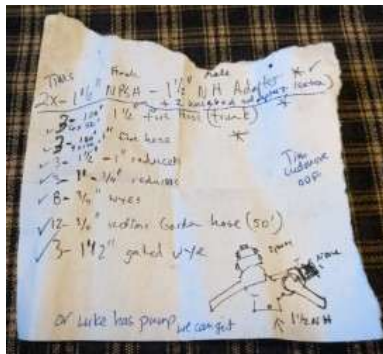 Tims Female Male
2x - 1 1/2" NPSH - 1 1/2" NH Adapter
3 - 1 1/2 fire hose (trunk) *
3 - 1" fire hose
✓3 - 1 1/2 - 1" reducers
✓3 - 1" - 3/4" reducers
✓8 - 3/4" wyes
✓12 - 3/4" Garden hose (50')
✓3 - 1 1/2" gated wye
Tim
ODF
1 1/2 NH
or Luke has pump we can get